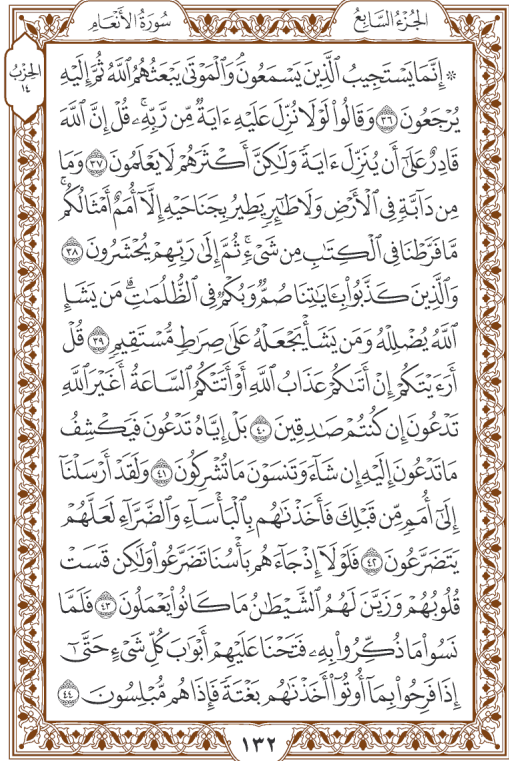 الجُزْءُ السَّابِعُ
سُورَةُ الأَنْعَامِ
الحِزْبُ
١٤
۞ إِنَّمَا يَسْتَجِيبُ ٱلَّذِينَ يَسْمَعُونَۘ وَٱلْمَوْتَىٰ يَبْعَثُهُمُ ٱللَّهُ ثُمَّ إِلَيْهِ
يُرْجَعُونَ ٣٦ وَقَالُوا۟ لَوْلَا نُزِّلَ عَلَيْهِ ءَايَةٌ مِّن رَّبِّهِۦۚ قُلْ إِنَّ ٱللَّهَ
قَادِرٌ عَلَىٰٓ أَن يُنَزِّلَ ءَايَةً وَلَٰكِنَّ أَكْثَرَهُمْ لَا يَعْلَمُونَ ٣٧ وَمَا
مِن دَآبَّةٍ فِى ٱلْأَرْضِ وَلَا طَٰٓئِرٍ يَطِيرُ بِجَنَاحَيْهِ إِلَّآ أُمَمٌ أَمْثَالُكُمۚ
مَّا فَرَّطْنَا فِى ٱلْكِتَٰبِ مِن شَىْءٍۚ ثُمَّ إِلَىٰ رَبِّهِمْ يُحْشَرُونَ ٣٨
وَٱلَّذِينَ كَذَّبُوا۟ بِـَٔايَٰتِنَا صُمٌّ وَبُكْمٌ فِى ٱلظُّلُمَٰتِۗ مَن يَشَإِ
ٱللَّهُ يُضْلِلْهُ وَمَن يَشَأْ يَجْعَلْهُ عَلَىٰ صِرَٰطٍ مُّسْتَقِيمٍ ٣٩ قُلْ
أَرَءَيْتَكُمْ إِنْ أَتَىٰكُمْ عَذَابُ ٱللَّهِ أَوْ أَتَتْكُمُ ٱلسَّاعَةُ أَغَيْرَ ٱللَّهِ
تَدْعُونَ إِن كُنتُمْ صَٰدِقِينَ ٤٠ بَلْ إِيَّاهُ تَدْعُونَ فَيَكْشِفُ
مَا تَدْعُونَ إِلَيْهِ إِن شَآءَ وَتَنسَوْنَ مَا تُشْرِكُونَ ٤١ وَلَقَدْ أَرْسَلْنَآ
إِلَىٰٓ أُمَمٍ مِّن قَبْلِكَ فَأَخَذْنَٰهُم بِٱلْبَأْسَآءِ وَٱلضَّرَّآءِ لَعَلَّهُمْ
يَتَضَرَّعُونَ ٤٢ فَلَوْلَآ إِذْ جَآءَهُم بَأْسُنَا تَضَرَّعُوا۟ وَلَٰكِن قَسَتْ
قُلُوبُهُمْ وَزَيَّنَ لَهُمُ ٱلشَّيْطَٰنُ مَا كَانُوا۟ يَعْمَلُونَ ٤٣ فَلَمَّا
نَسُوا۟ مَا ذُكِّرُوا۟ بِهِۦ فَتَحْنَا عَلَيْهِمْ أَبْوَٰبَ كُلِّ شَىْءٍ حَتَّىٰٓ
إِذَا فَرِحُوا۟ بِمَآ أُوتُوٓا۟ أَخَذْنَٰهُم بَغْتَةً فَإِذَا هُم مُّبْلِسُونَ ٤٤
١٣٢